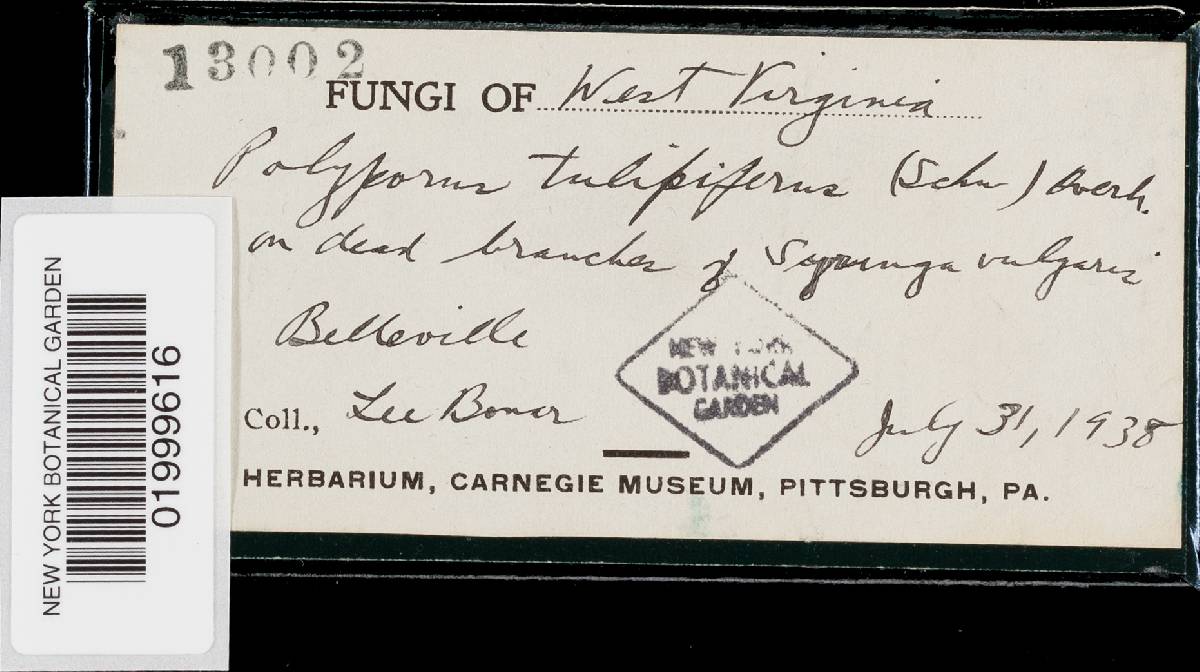 13002
FUNGI OF West Virginia
Polyporus tulipiferus (Schw) Overh.
on dead branches of Syringa vulgaris
Belleville
NEW YORK
BOTANICAL
GARDEN
Coll., Lee Bonar July 31, 1938
HERBARIUM, CARNEGIE MUSEUM, PITTSBURGH, PA.
NEW YORK BOTANICAL GARDEN
01999616